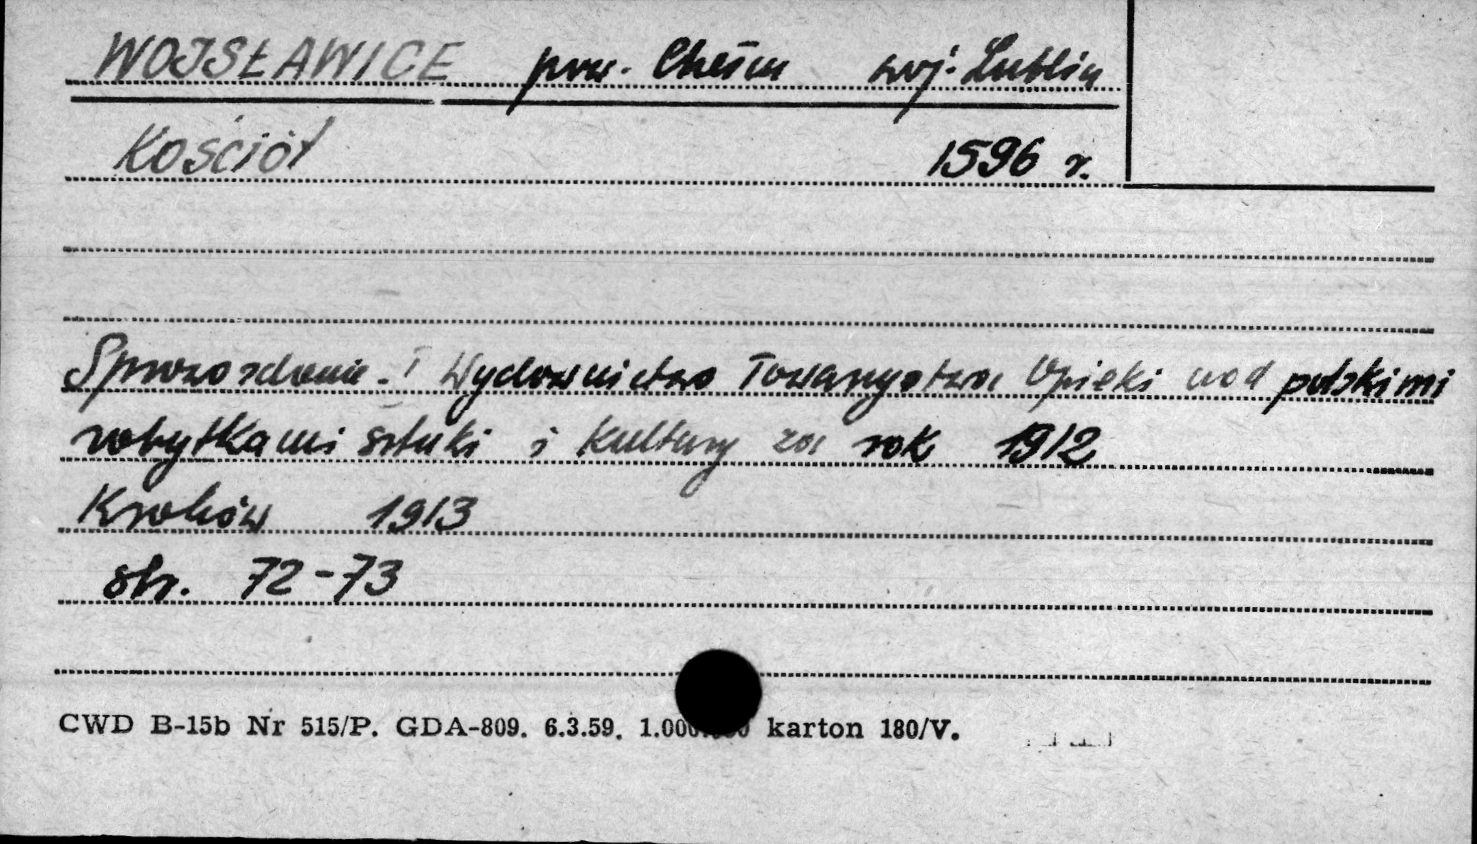 WOJSŁAWICE pow. Chełm woj. Lublin
Kościół 1596 r.
Sprawozdanie i Wydawnictwo Towarzystwa Opieki nad polskimi
zabytkami sztuki i kultury za rok 1912
Kraków 1913
str. 72-73
CWD B-15b Nr 515/P. GDA-809. 6.3.59. 1.000.000 karton 180/V.